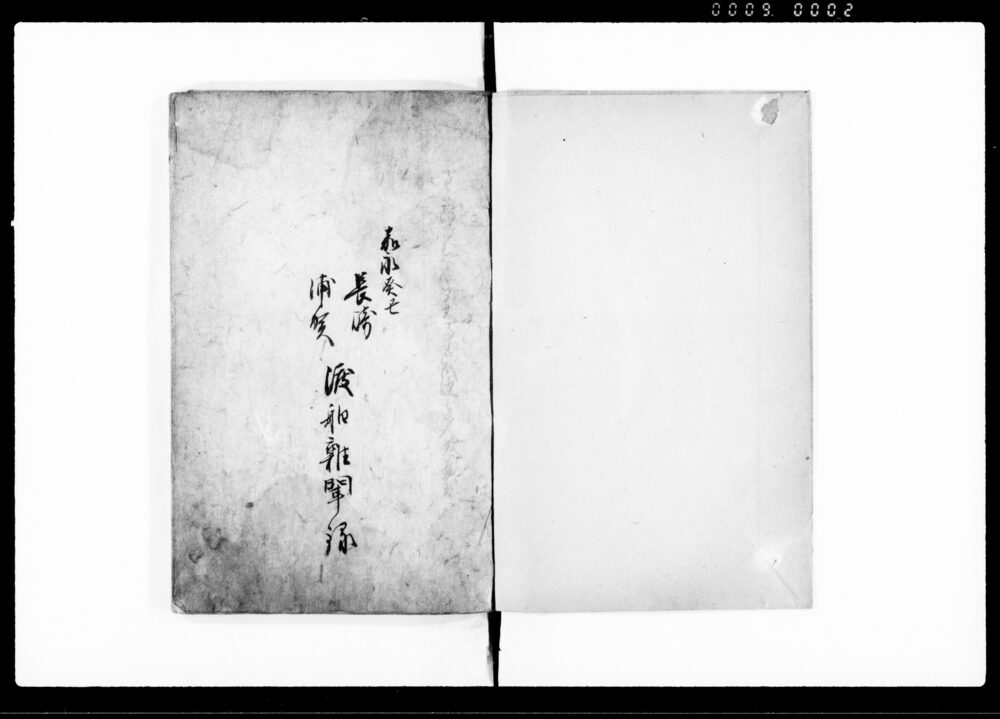 0009 0002
嘉永癸丑
長崎
浦賀
渡舶雑聞録